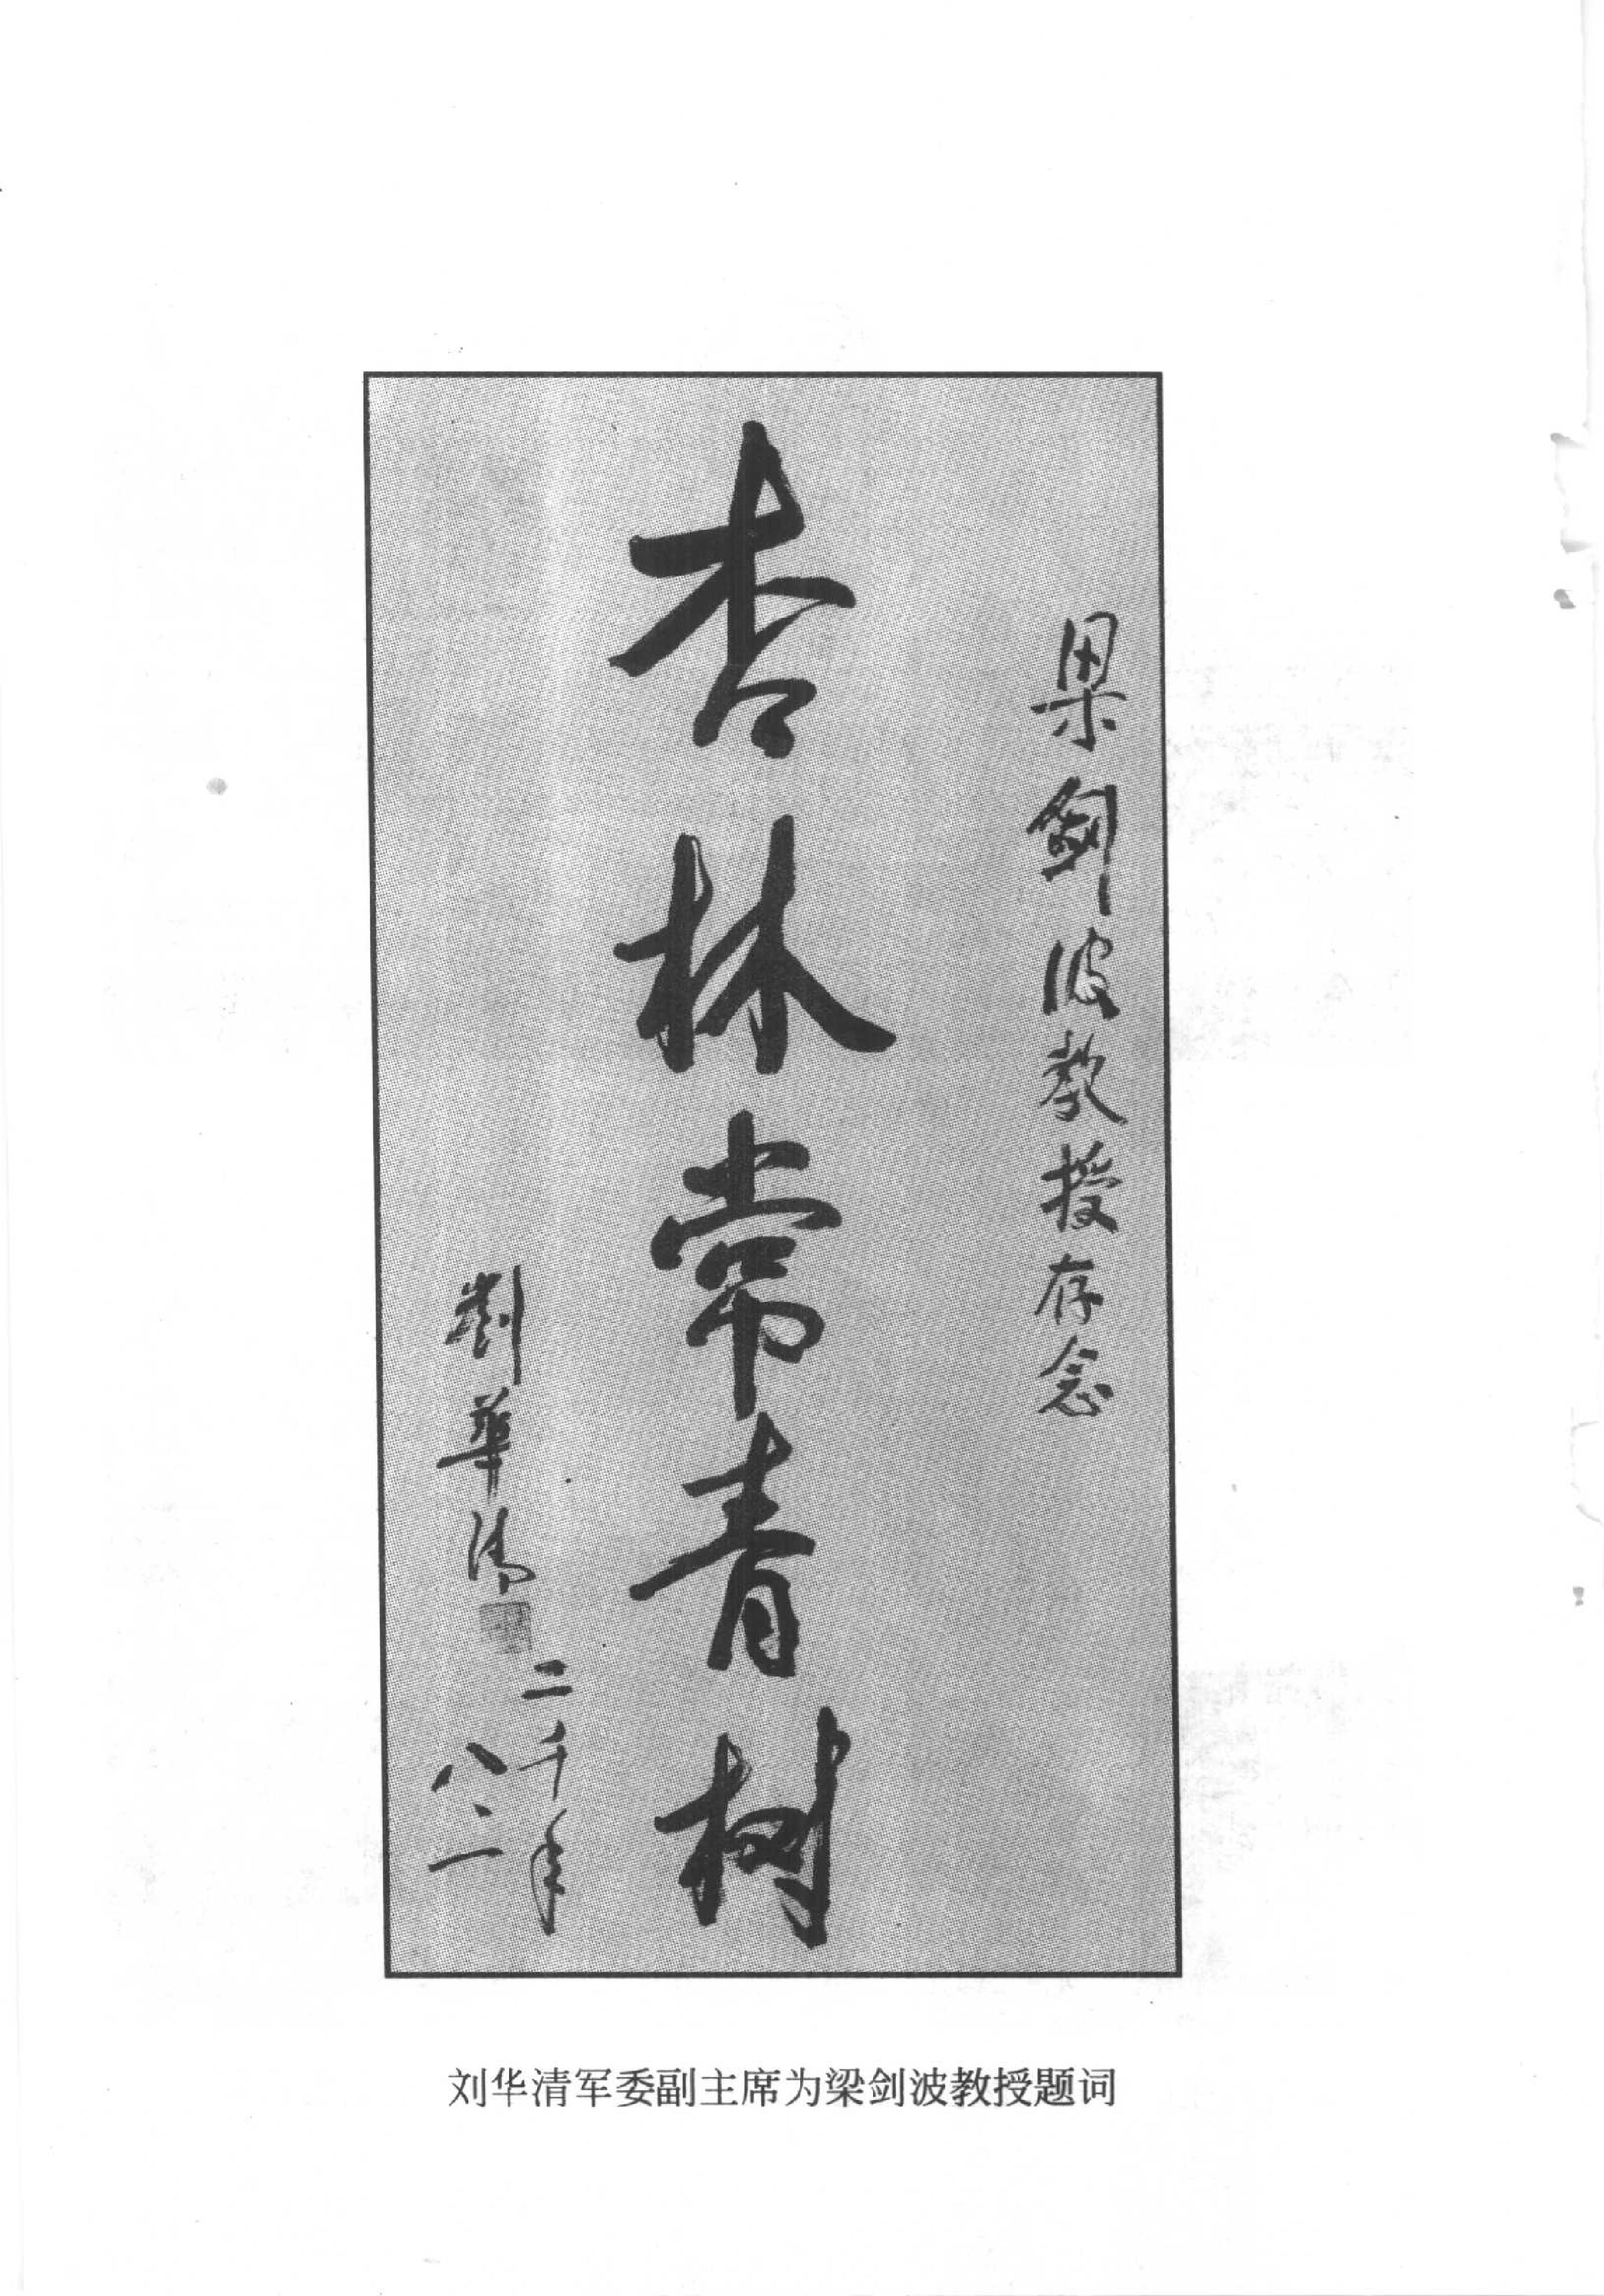 梁劍波教授存念
杏林常青树
劉華清
二千年
八.一
刘华清军委副主席为梁剑波教授题词